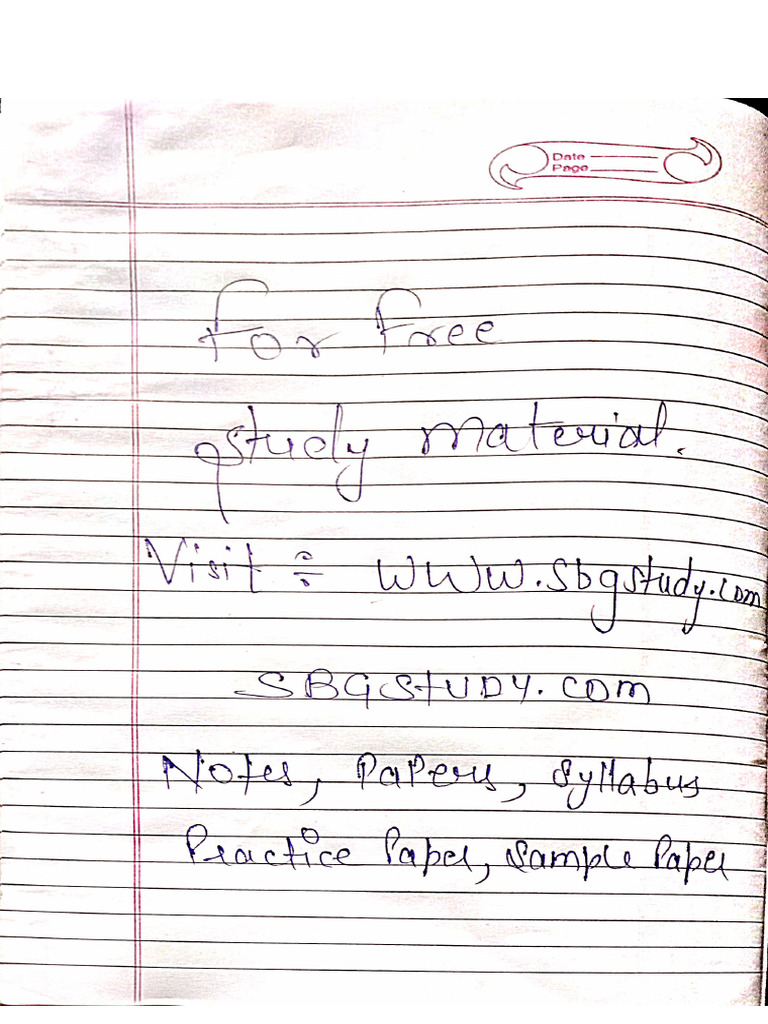 Date
Page
For Free
Study material.
Visit :- www.sbgstudy.com
SBGStUDY.COM
Notes, Papers, Syllabus
Practice Paper, Sample Paper